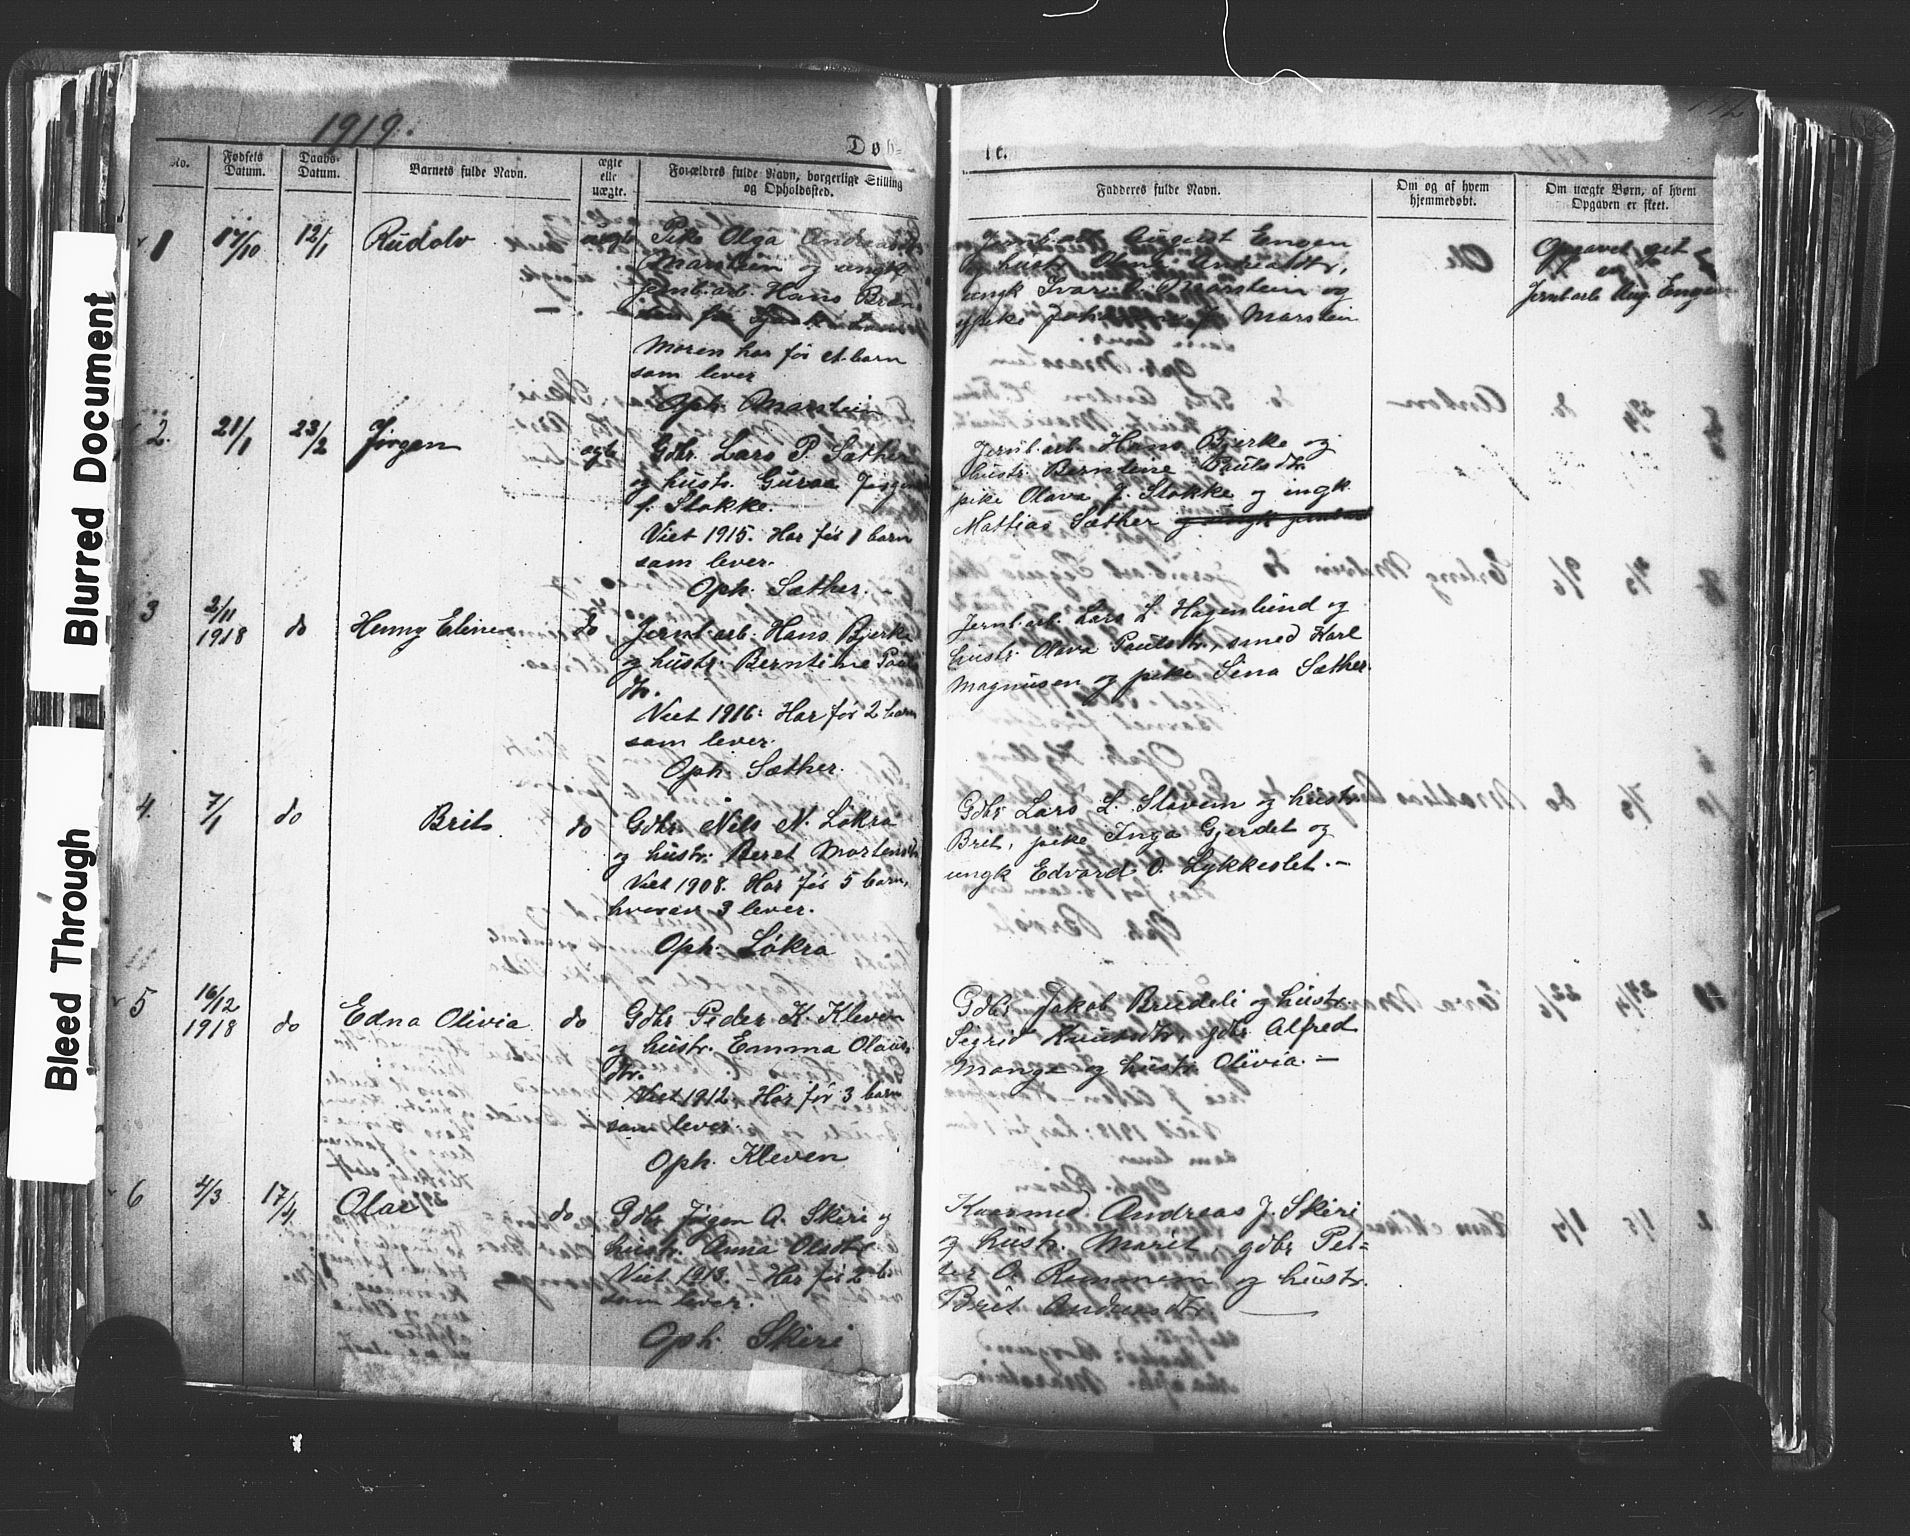 Blurred Document
Bleed Through
1919.
Døb-
te.
No.
Fødsels
Datum.
Daabs-
Datum.
Barnets fulde Navn.
ægte
elle
uægte.
Forældres fulde Navn, borgerlige Stilling
og Opholdssted.
Fadderes fulde Navn.
Om og af hvem
hjemmedøbt.
Om uægte Børn, af hvem
Opgaven er skeet.
1
17/10
12/1
Rudolv
uægte
Pike Olga Andreasdtr.
Marstein og ungk.
jernb.arb. Hans
Moren har før et barn
som lever
Oph. Marstein
Jernb.arb. August Engen
og hustr.
ungk Ivar O. Marstein og
pike Marstein
Opgavet
av
Jernb.arb Aug. Engen
2.
21/1
23/2
Jørgen
ægte
Gdbr. Lars P. Sæther
og hustr. Guraa Jørgens
f. Stokke.
Viet 1915. Har før 1 barn
som lever.
Oph. Sæther.
Jernb.arb. Hans Bjerke og
hustr. Berntine Paulsdtr.
pike Olava J. Stokke og ungk
Mattias Sæther
3
2/11
1918
do
Henny Eline
do
Jernb.arb. Hans Bjerke
og hustr. Berntine Pauls
dtr.
Viet 1916. Har før 2 barn
som lever.
Oph. Sæther.
Jernb.arb. Lars L. Hagenlund og
hustr. Olava Paulsdtr, smed Karl
Magnusen og pike Sina Sæther.
4.
7/1
do
Brit
do
Gdbr. Nils N. Løkra
og hustr. Beret Mortensdtr
Viet 1908. Har før 5 barn,
hvorav 3 lever.
Oph. Løkra
Gdbr Lars L. Stavem og hustr.
Brit, pike Inga Gjerdet og
ungk Edvard O. Lykkeslet. –
5
16/12
1918
do
Edna Olivia
do
Gdbr Peder K. Kleven
og hustr. Emma Olaus-
dtr.
Viet 1912. Har før 3 barn
som lever.
Oph. Kleven
Gdbr Jakob Brudeli og hustr.
Sigrid Knudsdtr, gdbr Alfred
Monge og hustr. Olivia. –
6
4/3
17/4
Olav
do
Gdbr Jørgen A. Skiri og
hustr. Anna Olsdtr.
Viet 1913. – Har før 2 b.
som lever.
Oph. Skiri
Kaarmd. Andreas J. Skiri
og hustr. Marit, gdbr Pet-
ter O. Remmem og hustr.
Brit Andreasdtr.